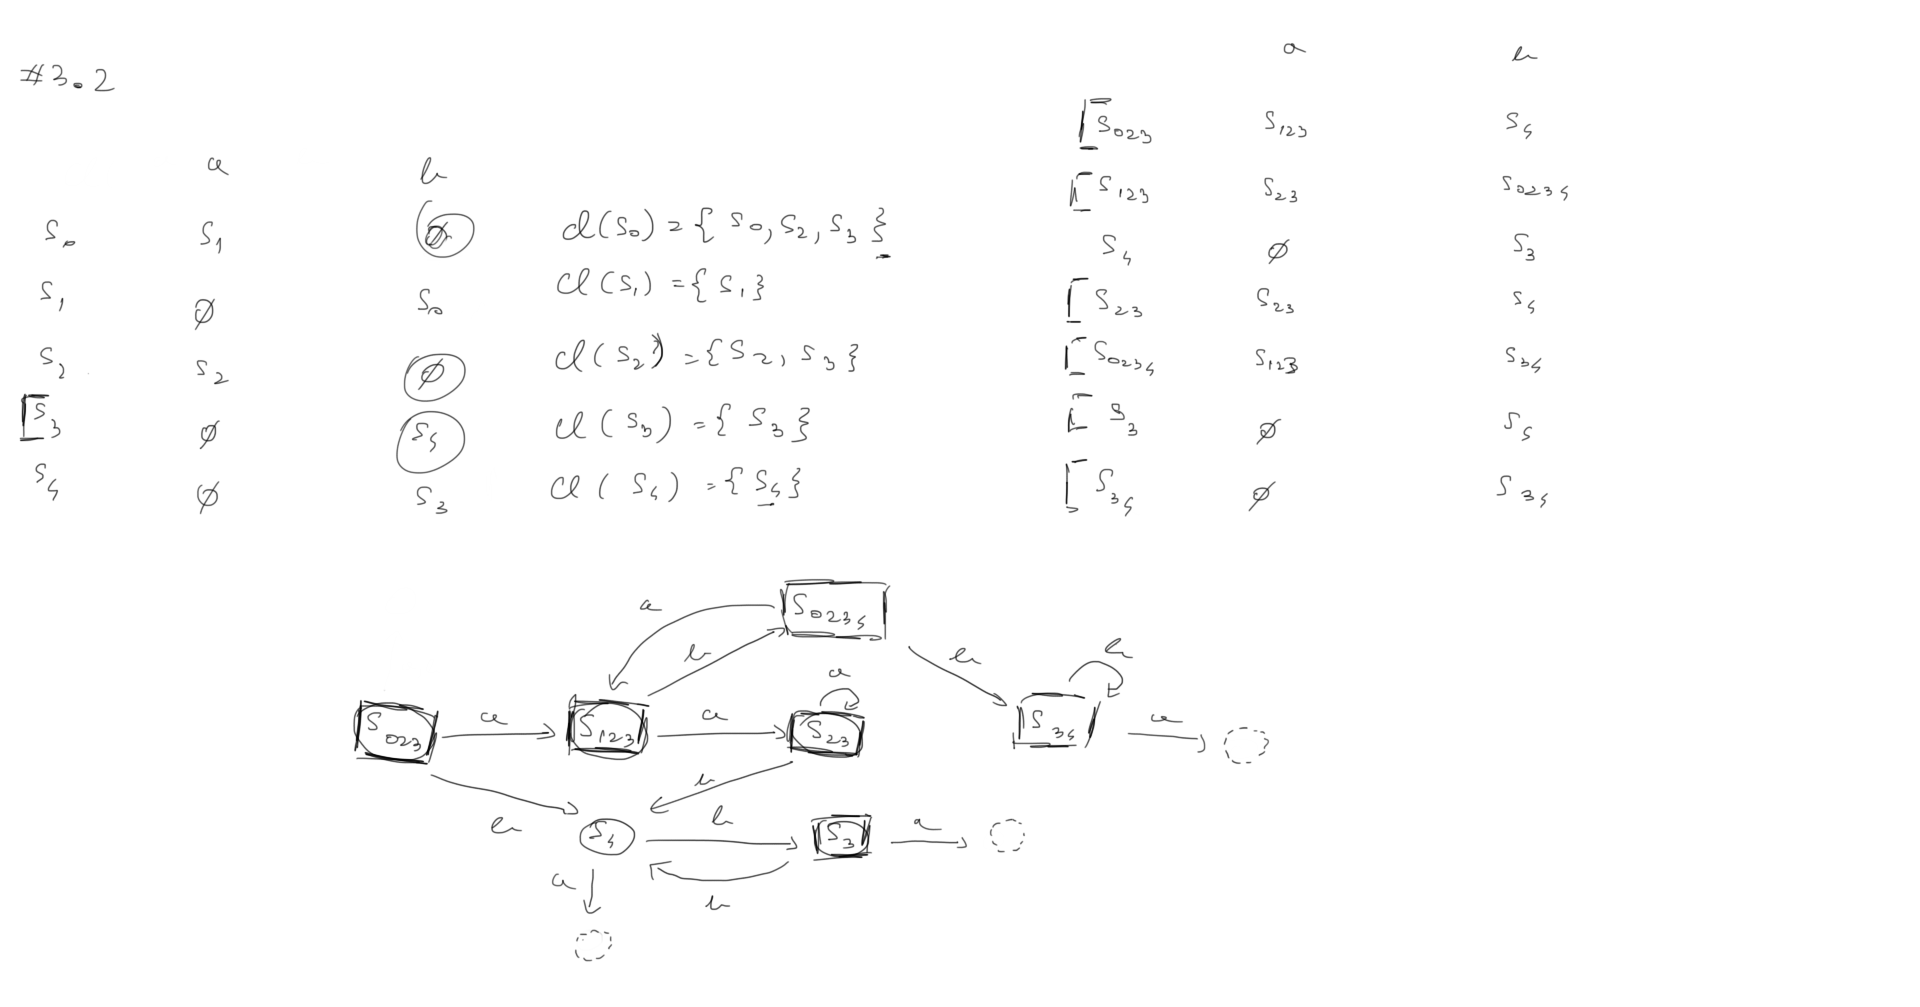 #3.2
a b
S0 S1 ∅
S1 ∅ S0
S2 S2 ∅
[S3 ∅ S4
S4 ∅ S3
cl(S0) = { S0, S2, S3 }
cl(S1) = { S1 }
cl(S2) = { S2, S3 }
cl(S3) = { S3 }
cl(S4) = { S4 }
a b
[S023 S123 S4
[S123 S23 S0234
S4 ∅ S3
[S23 S23 S4
[S0234 S123 S34
[S3 ∅ S4
[S34 ∅ S34
a S0234
b b b
a
S023 a S123 a S23 S34 a
b
b S4 b S3 a
a b